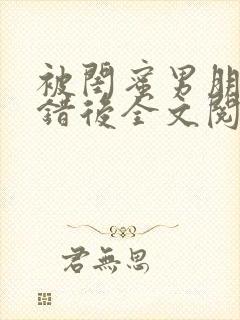 被閨蜜男朋
錯後全文閱
君無思